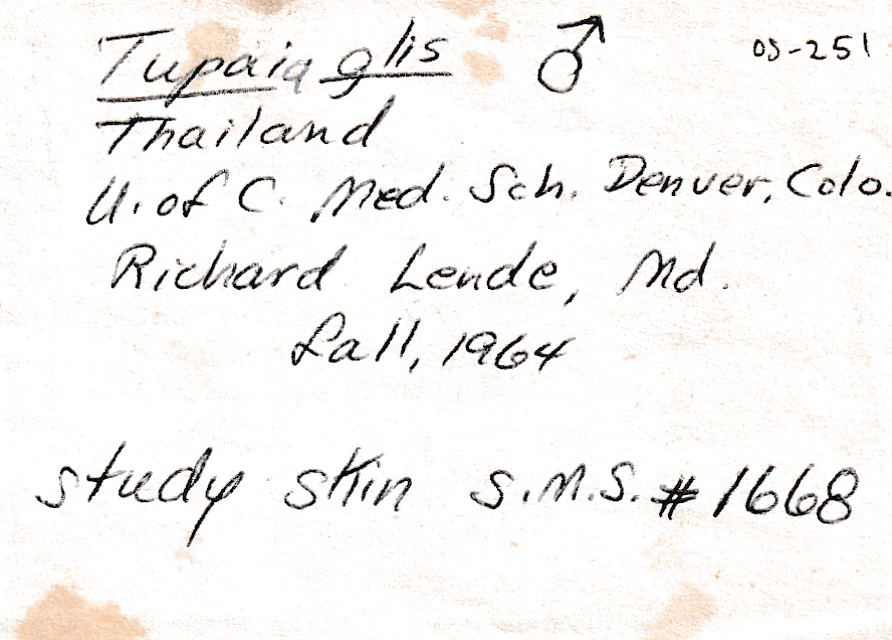 Tupaia glis ♂ OS-251
Thailand
U. of C. Med. Sch. Denver, Colo.
Richard Lende, Md.
Fall, 1964
study skin S.M.S. #1668